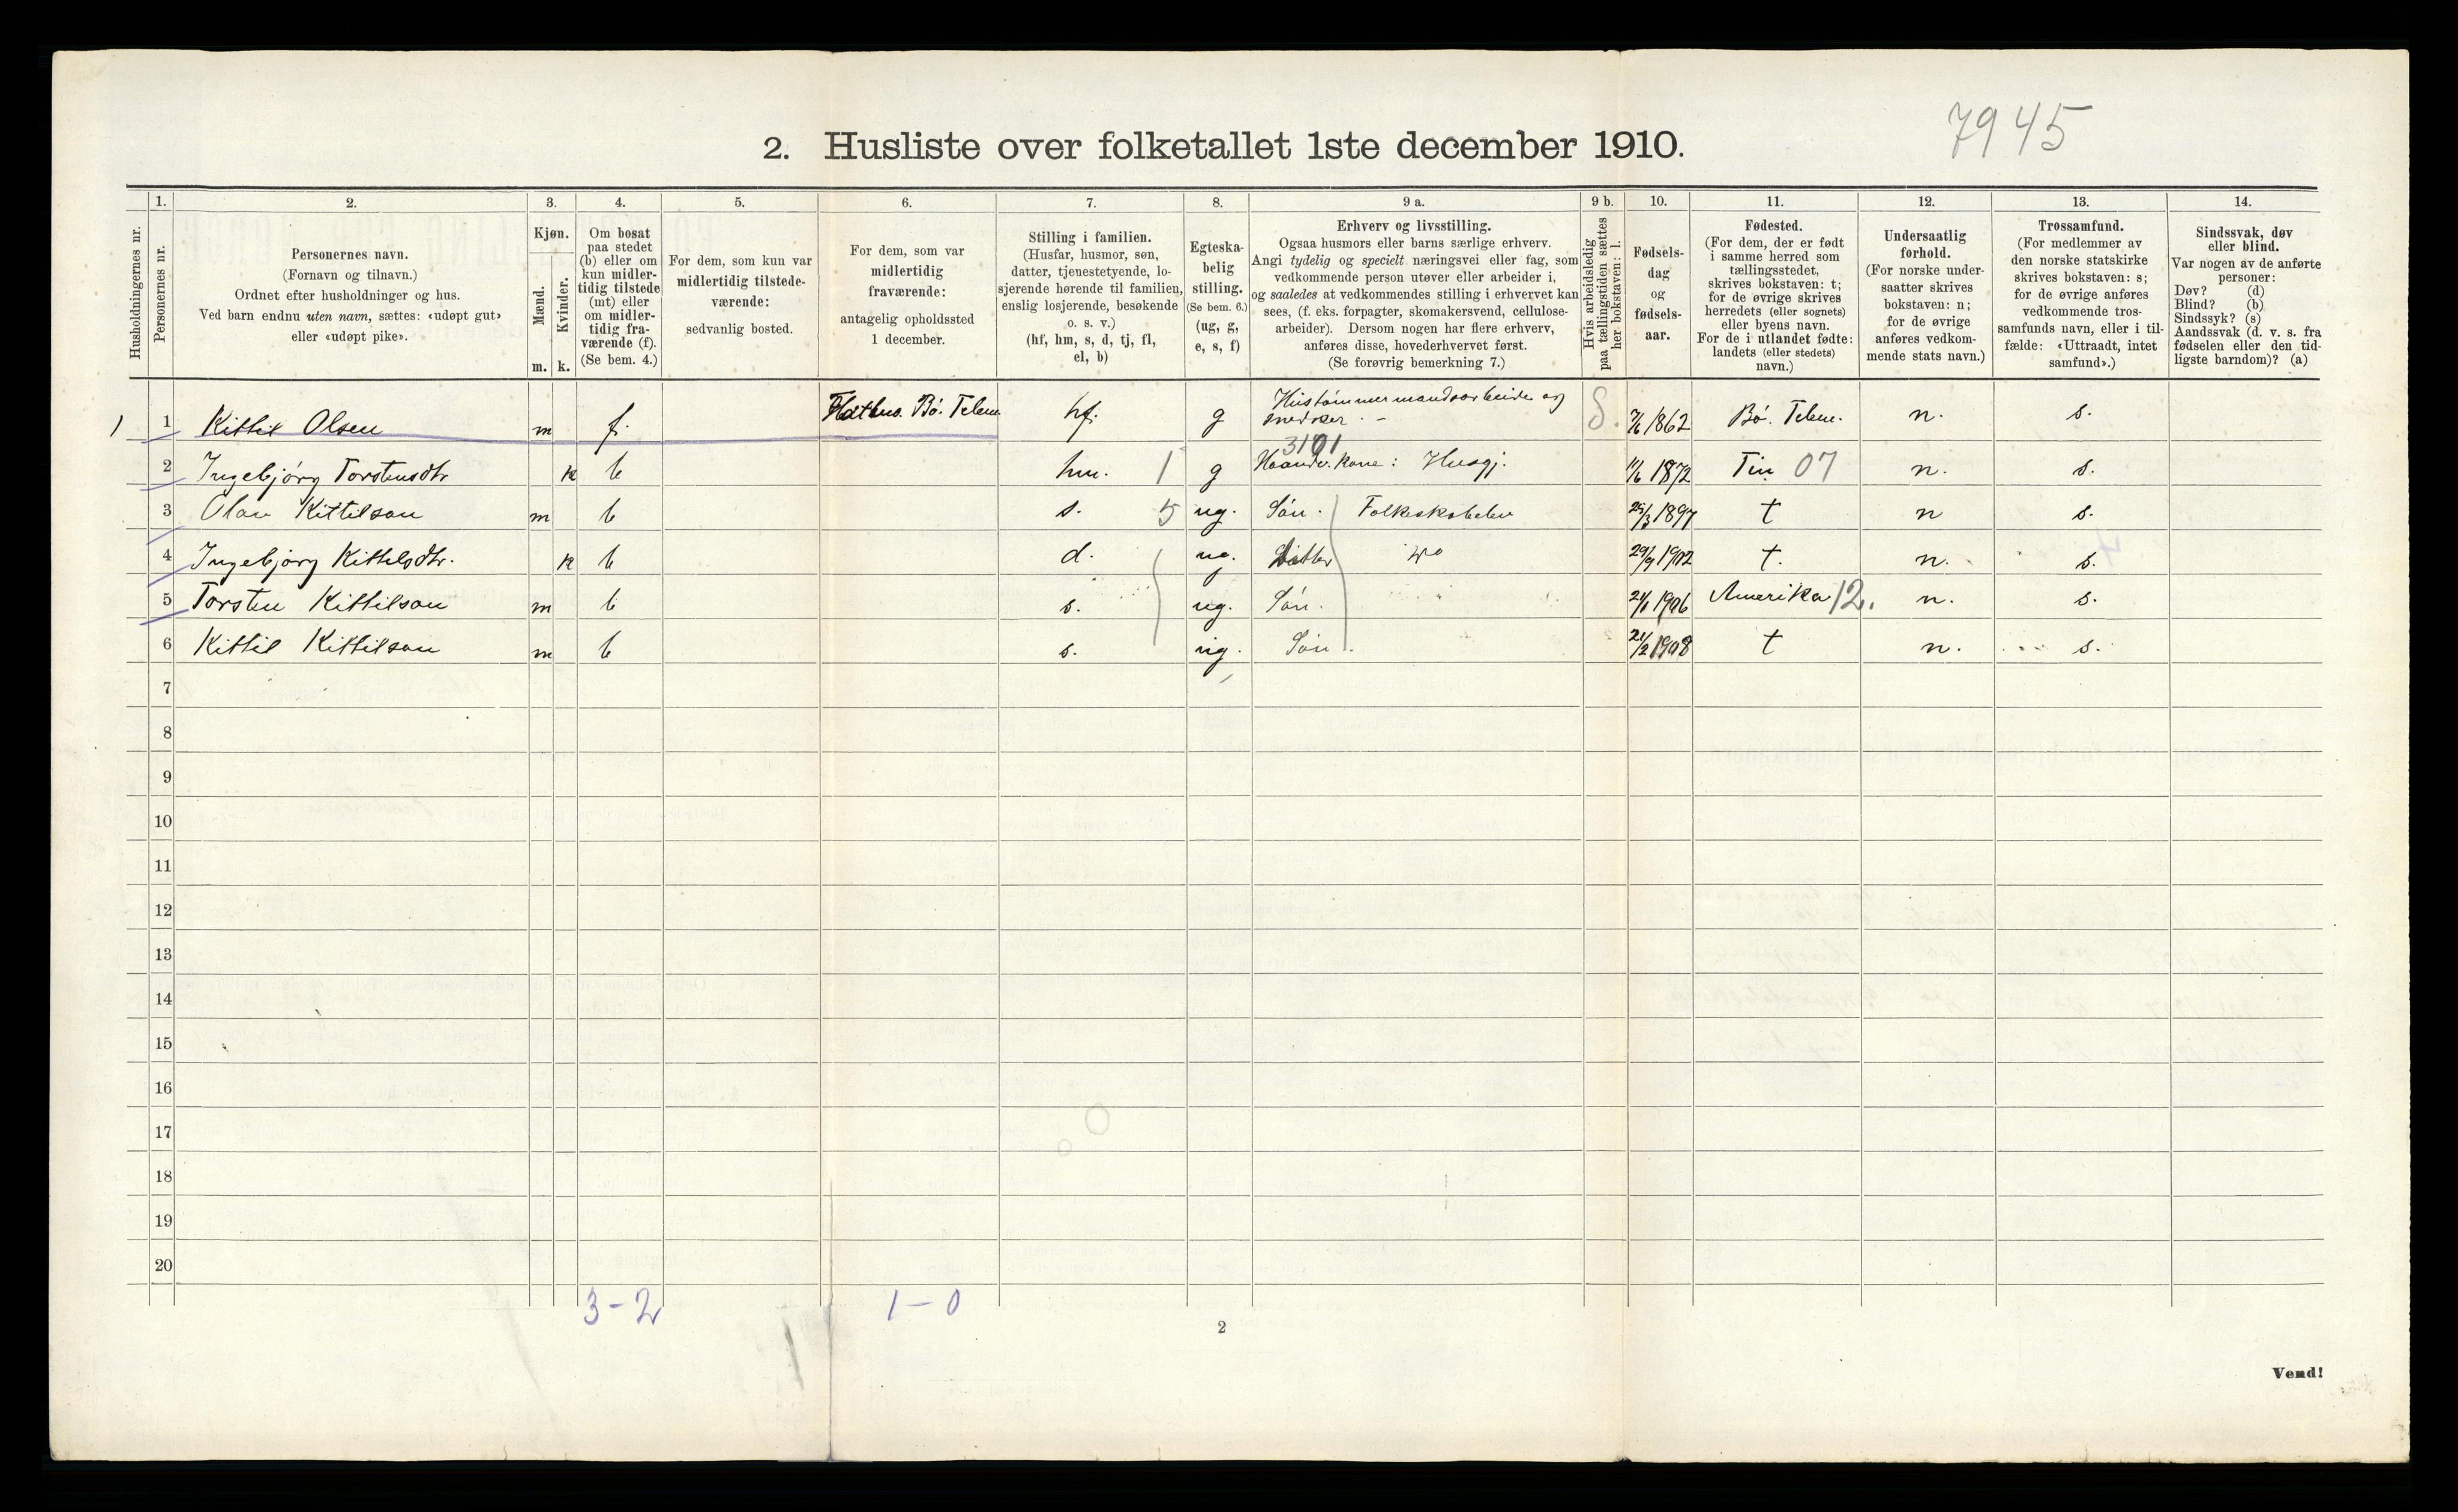 7945
2. Husliste over folketallet 1ste december 1910.
Husholdningernes nr.
1.
Personernes nr.
2.
Personernes navn.
(Fornavn og tilnavn.)
Ordnet efter husholdninger og hus.
Ved barn endnu uten navn, sættes: «udøpt gut»
eller «udøpt pike».
3.
Kjøn.
Mænd.
Kvinder.
m. k.
4.
Om bosat
paa stedet
(b) eller om
kun midler-
tidig tilstede
(mt) eller
om midler-
tidig fra-
værende (f).
(Se bem. 4.)
5.
For dem, som kun var
midlertidig tilstede-
værende:
sedvanlig bosted.
6.
For dem, som var
midlertidig
fraværende:
antagelig opholdssted
1 december.
7.
Stilling i familien.
(Husfar, husmor, søn,
datter, tjenestetyende, lo-
sjerende hørende til familien,
enslig losjerende, besøkende
o. s. v.)
(hf, hm, s, d, tj, fl,
el, b)
8.
Egteska-
belig
stilling.
(Se bem. 6.)
(ug, g,
e, s, f)
9 a.
Erhverv og livsstilling.
Ogsaa husmors eller barns særlige erhverv.
Angi tydelig og specielt næringsvei eller fag, som
vedkommende person utøver eller arbeider i,
og saaledes at vedkommendes stilling i erhvervet kan
sees, (f. eks. forpagter, skomakersvend, cellulose-
arbeider). Dersom nogen har flere erhverv,
anføres disse, hovederhvervet først.
(Se forøvrig bemerkning 7.)
9 b.
Hvis arbeidsledig
paa tællingstiden sættes
her bokstaven: l.
10.
Fødsels-
dag
og
fødsels-
aar.
11.
Fødested.
(For dem, der er født
i samme herred som
tællingsstedet,
skrives bokstaven: t;
for de øvrige skrives
herredets (eller sognets)
eller byens navn.
For de i utlandet fødte:
landets (eller stedets)
navn.)
12.
Undersaatlig
forhold.
(For norske under-
saatter skrives
bokstaven: n;
for de øvrige
anføres vedkom-
mende stats navn.)
13.
Trossamfund.
(For medlemmer av
den norske statskirke
skrives bokstaven: s;
for de øvrige anføres
vedkommende tros-
samfunds navn, eller i til-
fælde: «Uttraadt, intet
samfund».)
14.
Sindssvak, døv
eller blind.
Var nogen av de anførte
personer:
Døv? (d)
Blind? (b)
Sindssyk? (s)
Aandssvak (d. v. s. fra
fødselen eller den tid-
ligste barndom)? (a)
1 1 Kittil Olsen m f. Bø. Telem. hf. g Hustømmermandsarbeide og snedker. 1862 Bø. Telem. n. s.
2 Ingebjörg Torstensdtr k b hm. 1 g 3101 Kone: Husgj. 1872 Tin 07 n. s.
3 Olav Kittilson m b s. 5 ug. Søn. Folkeskolelev 1897 t n s.
4 Ingebjörg Kittilsdtr. k b d. ug. Datter 29/9 1902 t. n. s.
5 Torsten Kittilson m b s. ug. Søn. 1906 Amerika 12. n. s.
6 Kittil Kittilson m b s. ug. Søn. 21/2 1908 t n. s.
7
8
9
10
11
12
13
14
15
16
17
18
19
20
3-2 1-0
2
Vend!